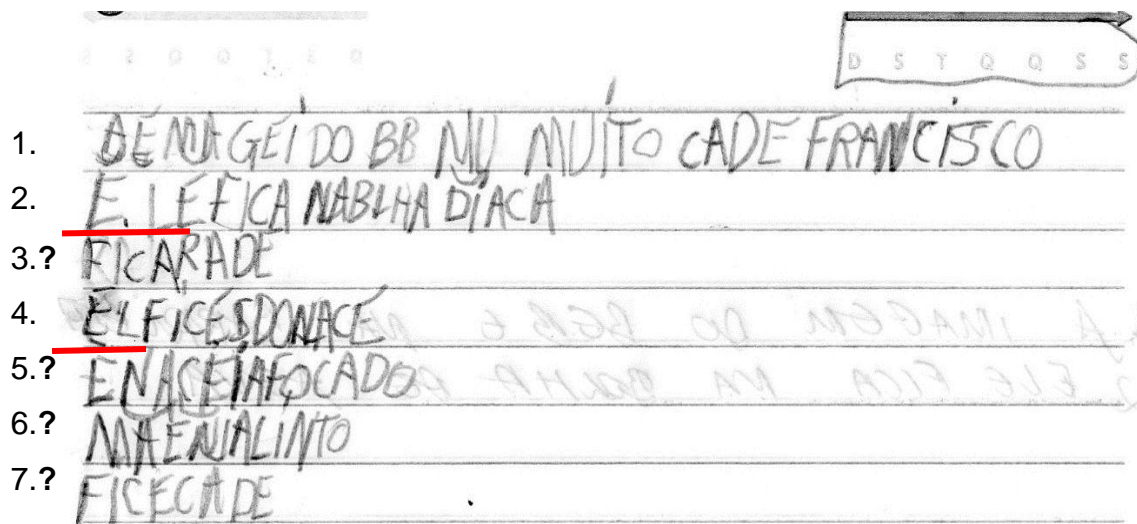 D S T Q Q S S
1. A EMAGEI DO BB NU MUITO CADE FRANCISCO
2. E. LE FICA NABLHA DIACA
3.? FICARADE
4. ELFICESDONACE
5.? ENACEIAFOCADO
6.? MAENIALINTO
7.? FICECADE